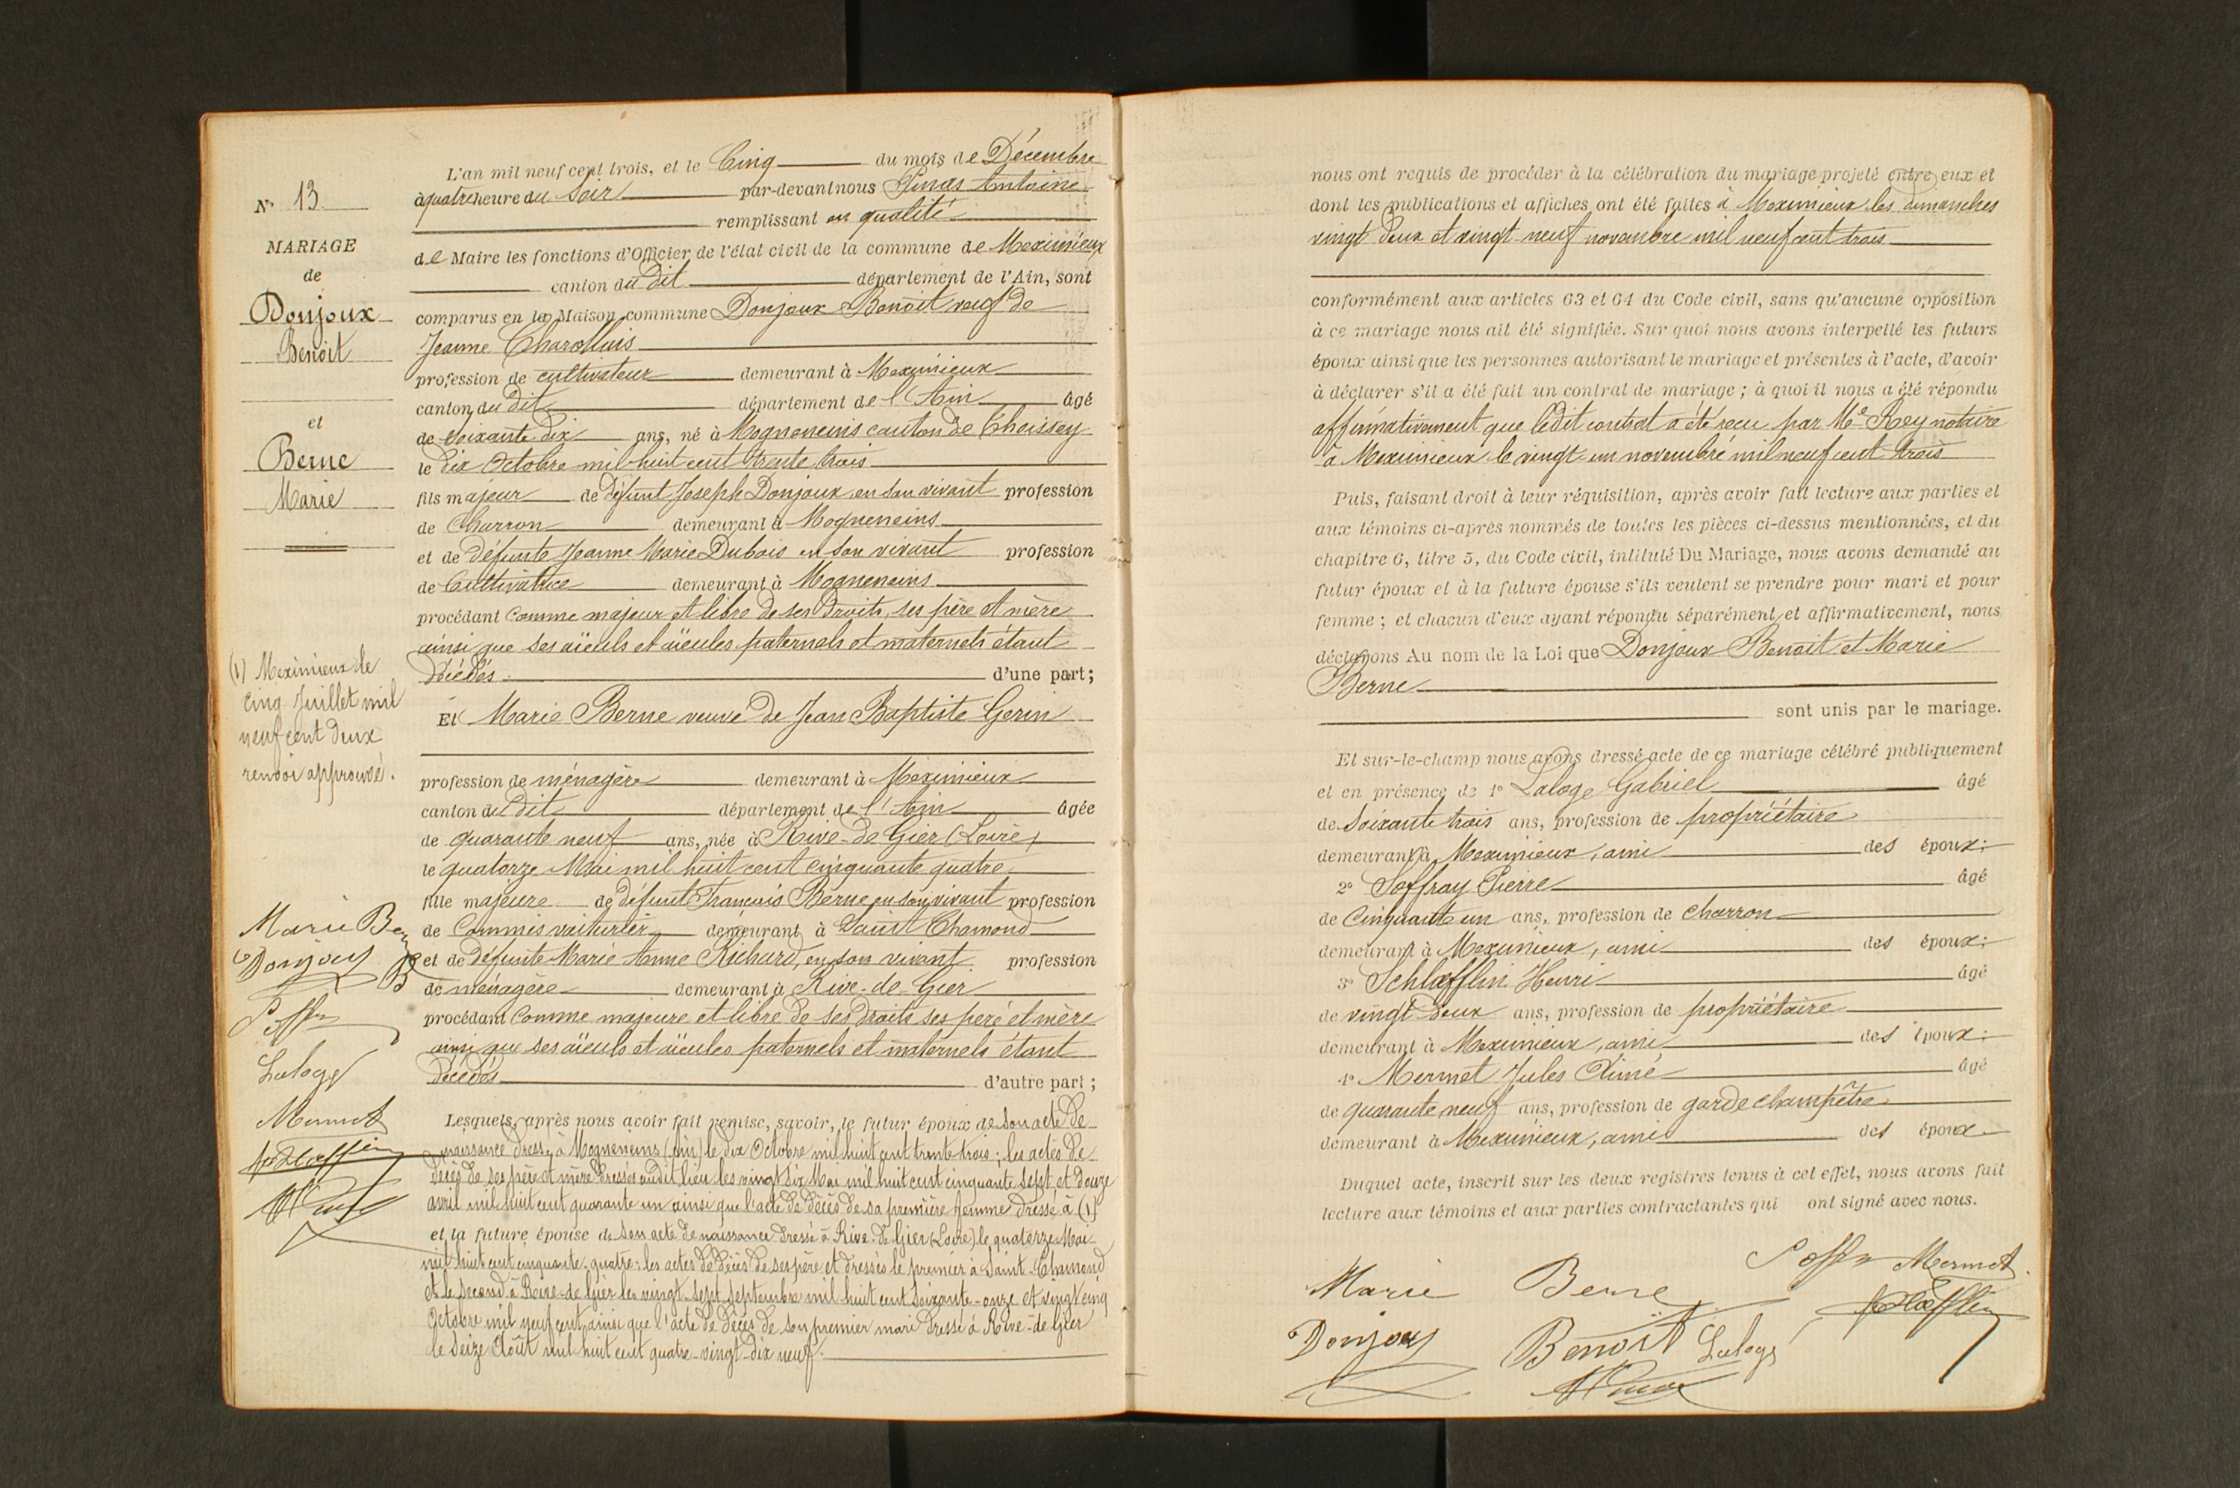 N° 13
MARIAGE
de
Donjoux
Benoit
et
Berne
Marie
(1) Meximieux le
cinq Juillet mil
neuf cent deux
renvoi approuvé.
Marie Ber
Donjoux B
Laloge
Mermet
L'an mil neuf cent trois, et le Cinq du mois de Décembre
à quatre heure du Soir par-devant nous Antoine
remplissant en qualité
de Maire les fonctions d'Officier de l'état civil de la commune de Meximieux
canton du dit département de l'Ain, sont
comparus en la Maison commune Donjoux Benoit veuf de
Jeanne Charollais
profession de cultivateur demeurant à Meximieux
canton du dit département de l'Ain âgé
de soixante dix ans, né à Mogneneins canton de Thoissey
le dix Octobre mil huit cent trente trois
fils majeur de défunt Joseph Donjoux en son vivant profession
de Charron demeurant à Mogneneins
et de défunte Jeanne Marie Dubois en son vivant profession
de Cultivatrice demeurant à Mogneneins
procédant comme majeur et libre de ses droits, ses père et mère
ainsi que ses aïeuls et aïeules paternels et maternels étant
décédés d'une part;
Et Marie Berne veuve de Jean Baptiste Gerin
profession de ménagère demeurant à Meximieux
canton du dit département de l'Ain âgée
de quarante neuf ans, née à Rive-de-Gier (Loire)
le quatorze Mai mil huit cent cinquante quatre
fille majeure de défunt François Berne en son vivant profession
de Commis voiturier demeurant à Saint Chamond
et de défunte Marie Anne Richard, en son vivant profession
de ménagère demeurant à Rive-de-Gier
procédant comme majeure et libre de ses droits ses père et mère
ainsi que ses aïeuls et aïeules paternels et maternels étant
décédés d'autre part;
Lesquels, après nous avoir fait remise, savoir, le futur époux de son acte de
naissance dressé à Mogneneins (Ain) le dix Octobre mil huit cent trente trois; les actes de
décès de ses père et mère dressés audit lieu les vingt six Mai mil huit cent cinquante sept et douze
avril mil huit cent quarante un ainsi que l'acte de décès de sa première femme dressé à (1)
et la future épouse de son acte de naissance dressé à Rive-de-Gier (Loire) le quatorze Mai
mil huit cent cinquante-quatre; les actes de décès de ses père et dressés le premier à Saint-Chamond
et le second à Rive-de-Gier les vingt-sept Septembre mil huit cent soixante-onze et vingt cinq
Octobre mil neuf cent, ainsi que l'acte de décès de son premier mari dressé à Rive-de-Gier
le seize Août mil huit cent quatre-vingt-dix neuf.
nous ont requis de procéder à la célébration du mariage projeté entre eux et
dont les publications et affiches ont été faites à Meximieux les dimanches
vingt deux et vingt-neuf novembre mil neuf cent trois
conformément aux articles 63 et 64 du Code civil, sans qu'aucune opposition
à ce mariage nous ait été signifiée. Sur quoi nous avons interpellé les futurs
époux ainsi que les personnes autorisant le mariage et présentes à l'acte, d'avoir
à déclarer s'il a été fait un contrat de mariage; à quoi il nous a été répondu
affirmativement que ledit contrat a été recu par Me Rey notaire
à Meximieux le vingt-un novembre mil neuf cent trois
Puis, faisant droit à leur réquisition, après avoir fait lecture aux parties et
aux témoins ci-après nommés de toutes les pièces ci-dessus mentionnées, et du
chapitre 6, titre 5, du Code civil, intitulé Du Mariage, nous avons demandé au
futur époux et à la future épouse s'ils veulent se prendre pour mari et pour
femme; et chacun d'eux ayant répondu séparément et affirmativement, nous
déclarons Au nom de la Loi que Donjoux Benoit et Marie
Berne
sont unis par le mariage.
Et sur-le-champ nous avons dressé acte de ce mariage célébré publiquement
et en présence de 1° Laloge Gabriel âgé
de Soixante trois ans, profession de propriétaire
demeurant à Meximieux, ami des époux;
2° Soffray Pierre âgé
de Cinquante un ans, profession de charron
demeurant à Meximieux, ami des époux;
3° Schlæfflin Henri âgé
de vingt deux ans, profession de propriétaire
demeurant à Meximieux, ami des époux;
4° Mermet Jules Aimé âgé
de quarante neuf ans, profession de garde champêtre
demeurant à Meximieux, ami des époux
Duquel acte, inscrit sur les deux registres tenus à cet effet, nous avons fait
lecture aux témoins et aux parties contractantes qui ont signé avec nous.
Marie Berne Mermet
Donjoux Benoit Laloge